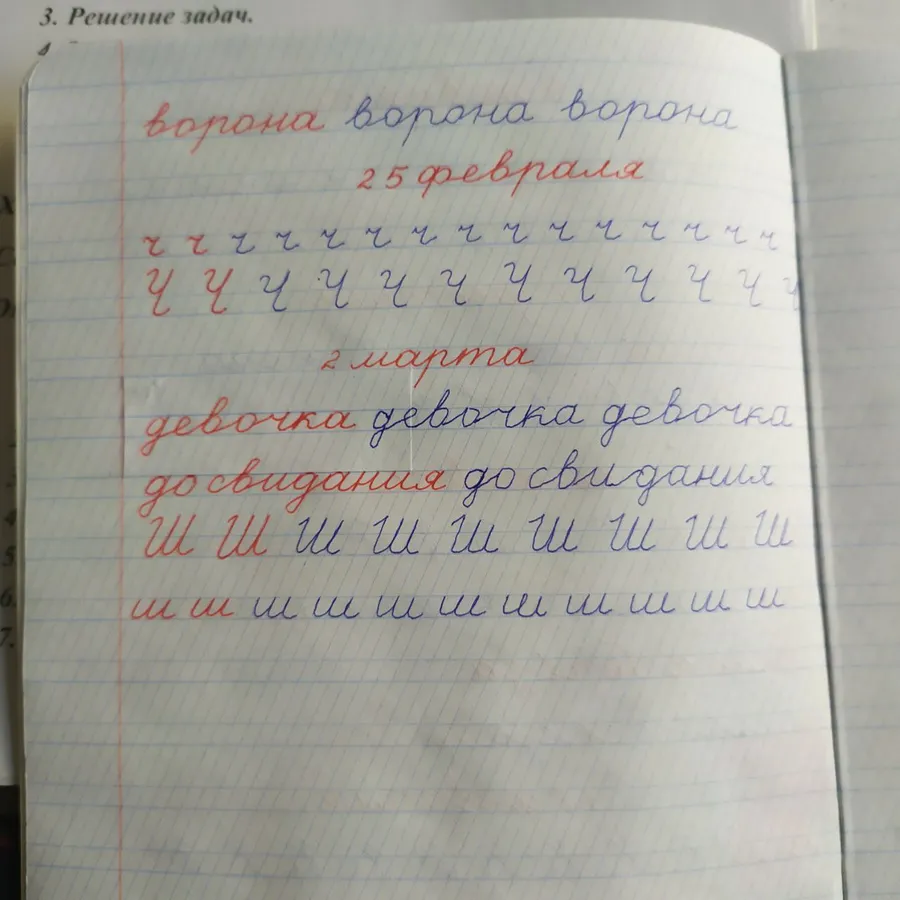 3. Решение задач.
4
ворона ворона ворона
25 февраля
ч ч ч ч ч ч ч ч ч ч ч ч ч ч ч
Ч Ч Ч Ч Ч Ч Ч Ч Ч Ч Ч Ч
2 марта
девочка девочка девочка
до свидания до свидания
Ш Ш Ш Ш Ш Ш Ш Ш Ш
ш ш ш ш ш ш ш ш ш ш ш
5.
6.
7.